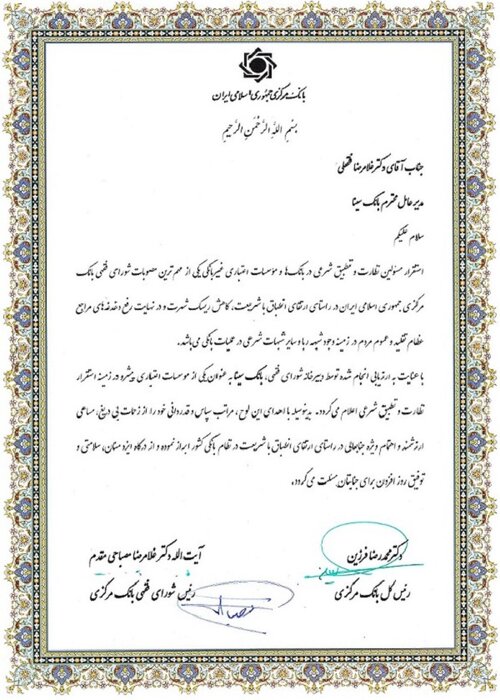 بانک مرکزی جمهوری اسلامی ایران
بِسْمِ اللَّهِ الرَّحْمَنِ الرَّحِيمِ
جناب آقای دکتر غلامرضا فتحعلی
مدیر عامل محترم بانک سینا
سلام علیکم
استقرار مسئولین نظارت و تطبیق شرعی در بانک‌ها و مؤسسات اعتباری غیربانکی یکی از مهم ترین مصوبات شورای فقهی بانک
مرکزی جمهوری اسلامی ایران در راستای ارتقای انطباق با شریعت، کاهش ریسک شهرت و در نهایت رفع دغدغه های مراجع
عظام تقلید و عموم مردم در زمینه وجود شبهه ربا و سایر شبهات شرعی در عملیات بانکی می‌باشد.
با عنایت به ارزیابی انجام شده توسط دبیرخانه شورای فقهی، بانک سینا به عنوان یکی از موسسات اعتباری پیشرو در زمینه استقرار
نظارت و تطبیق شرعی اعلام می‌گردد. بدینوسیله با اهدای این لوح، مراتب سپاس و قدردانی خود را از زحمات بی دریغ، مساعی
ارزشمند و اهتمام ویژه جنابعالی در راستای ارتقای انطباق با شریعت در نظام بانکی کشور ابراز نموده و از درگاه ایزد منان، سلامتی و
توفیق روز افزون برای جنابتان مسئلت می‌گردد.
دکتر محمدرضا فرزین
رئیس کل بانک مرکزی
آیت الله دکتر غلامرضا مصباحی مقدم
رئیس شورای فقهی بانک مرکزی